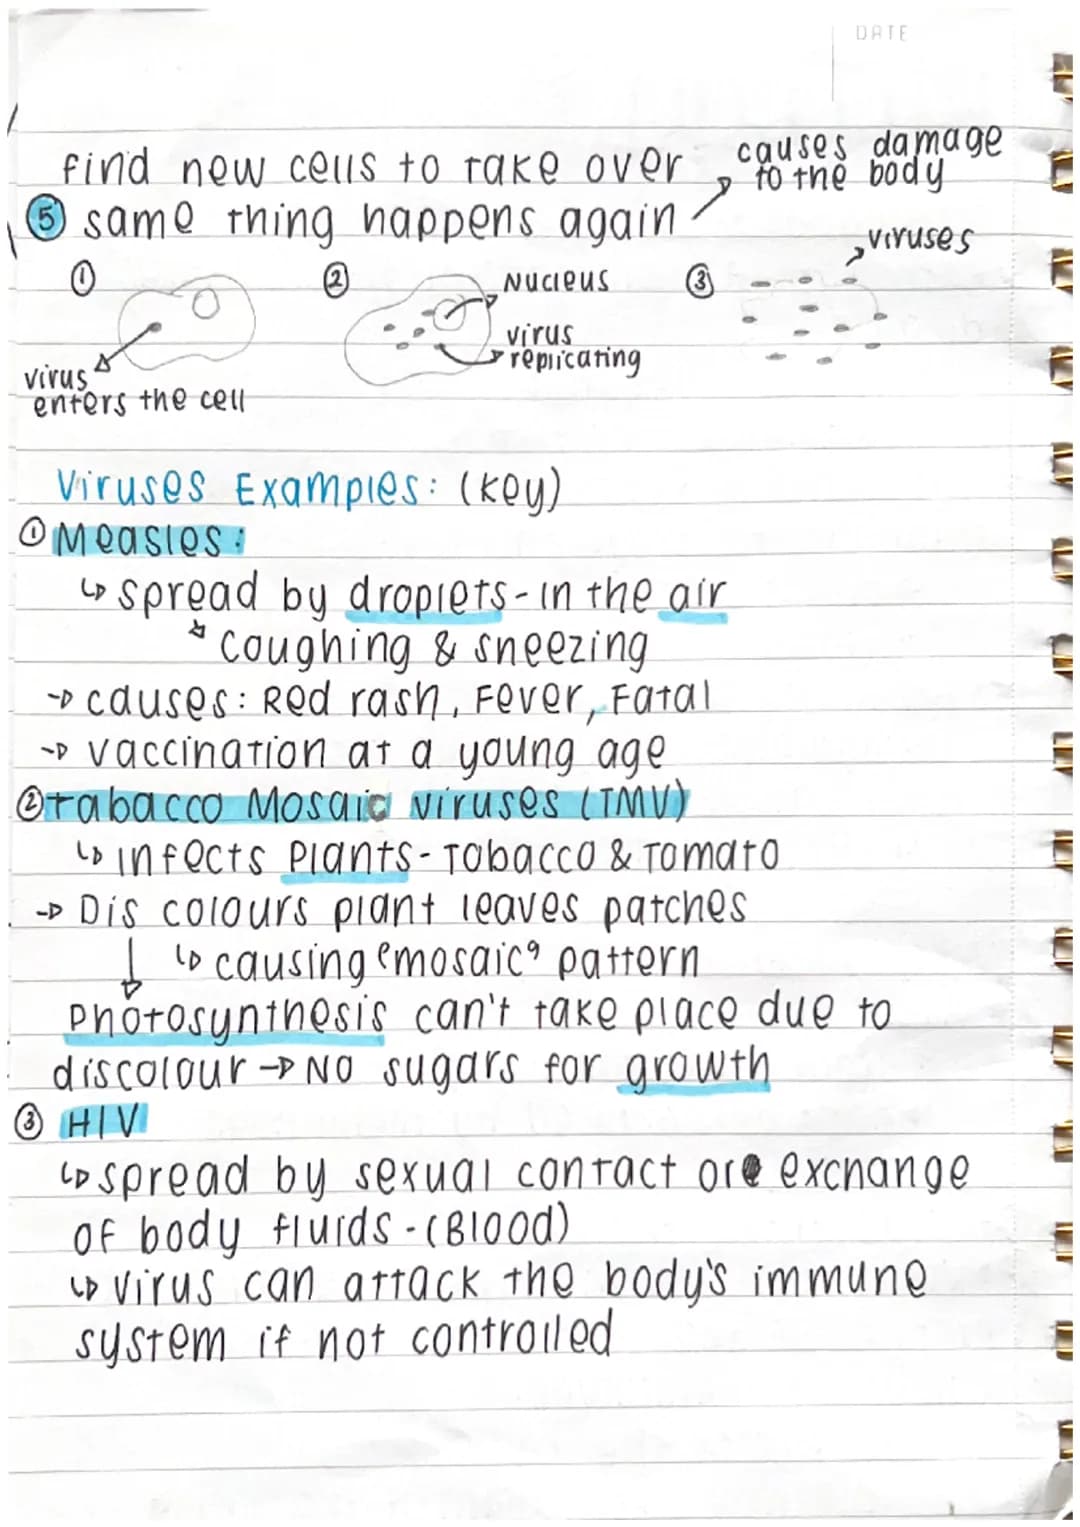 DATE
find new cells to take over
causes damage
to the body
⑤ same thing happens again
viruses
①
②
Nucleus
③
virus
replicating
virus
enters the cell
Viruses Examples: (key)
① Measles:
↳ spread by droplets - in the air
↳ coughing & sneezing
→ causes: Red rash, Fever, Fatal
→ vaccination at a young age
② Tabacco Mosaic viruses (TMV)
↳ infects Plants - Tobacco & Tomato
→ Dis colours plant leaves patches
↳ causing "mosaic" pattern
Photosynthesis can't take place due to
discolour → No sugars for growth
③ HIV
↳ spread by sexual contact or exchange
of body fluids - (Blood)
↳ virus can attack the body's immune
system if not controlled